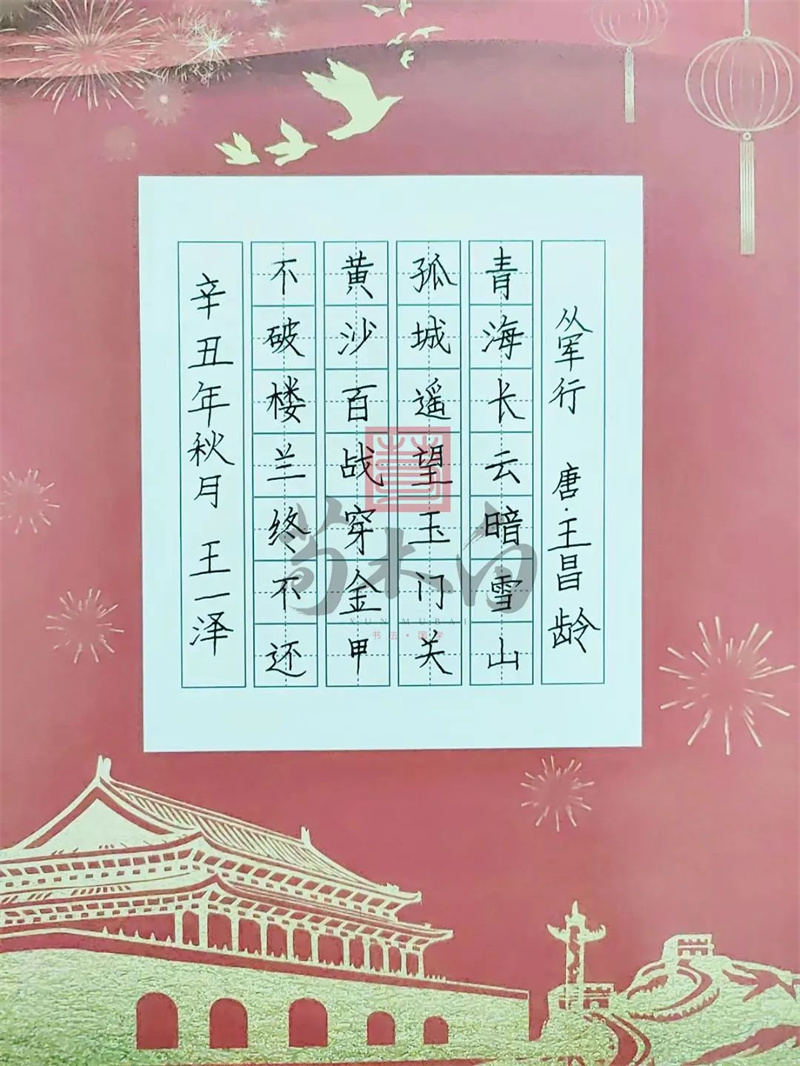 从军行 唐·王昌龄
青海长云暗雪山
孤城遥望玉门关
黄沙百战穿金甲
不破楼兰终不还
辛丑年秋月 王一泽
荀木白
XUNMUBAI
书法·国学